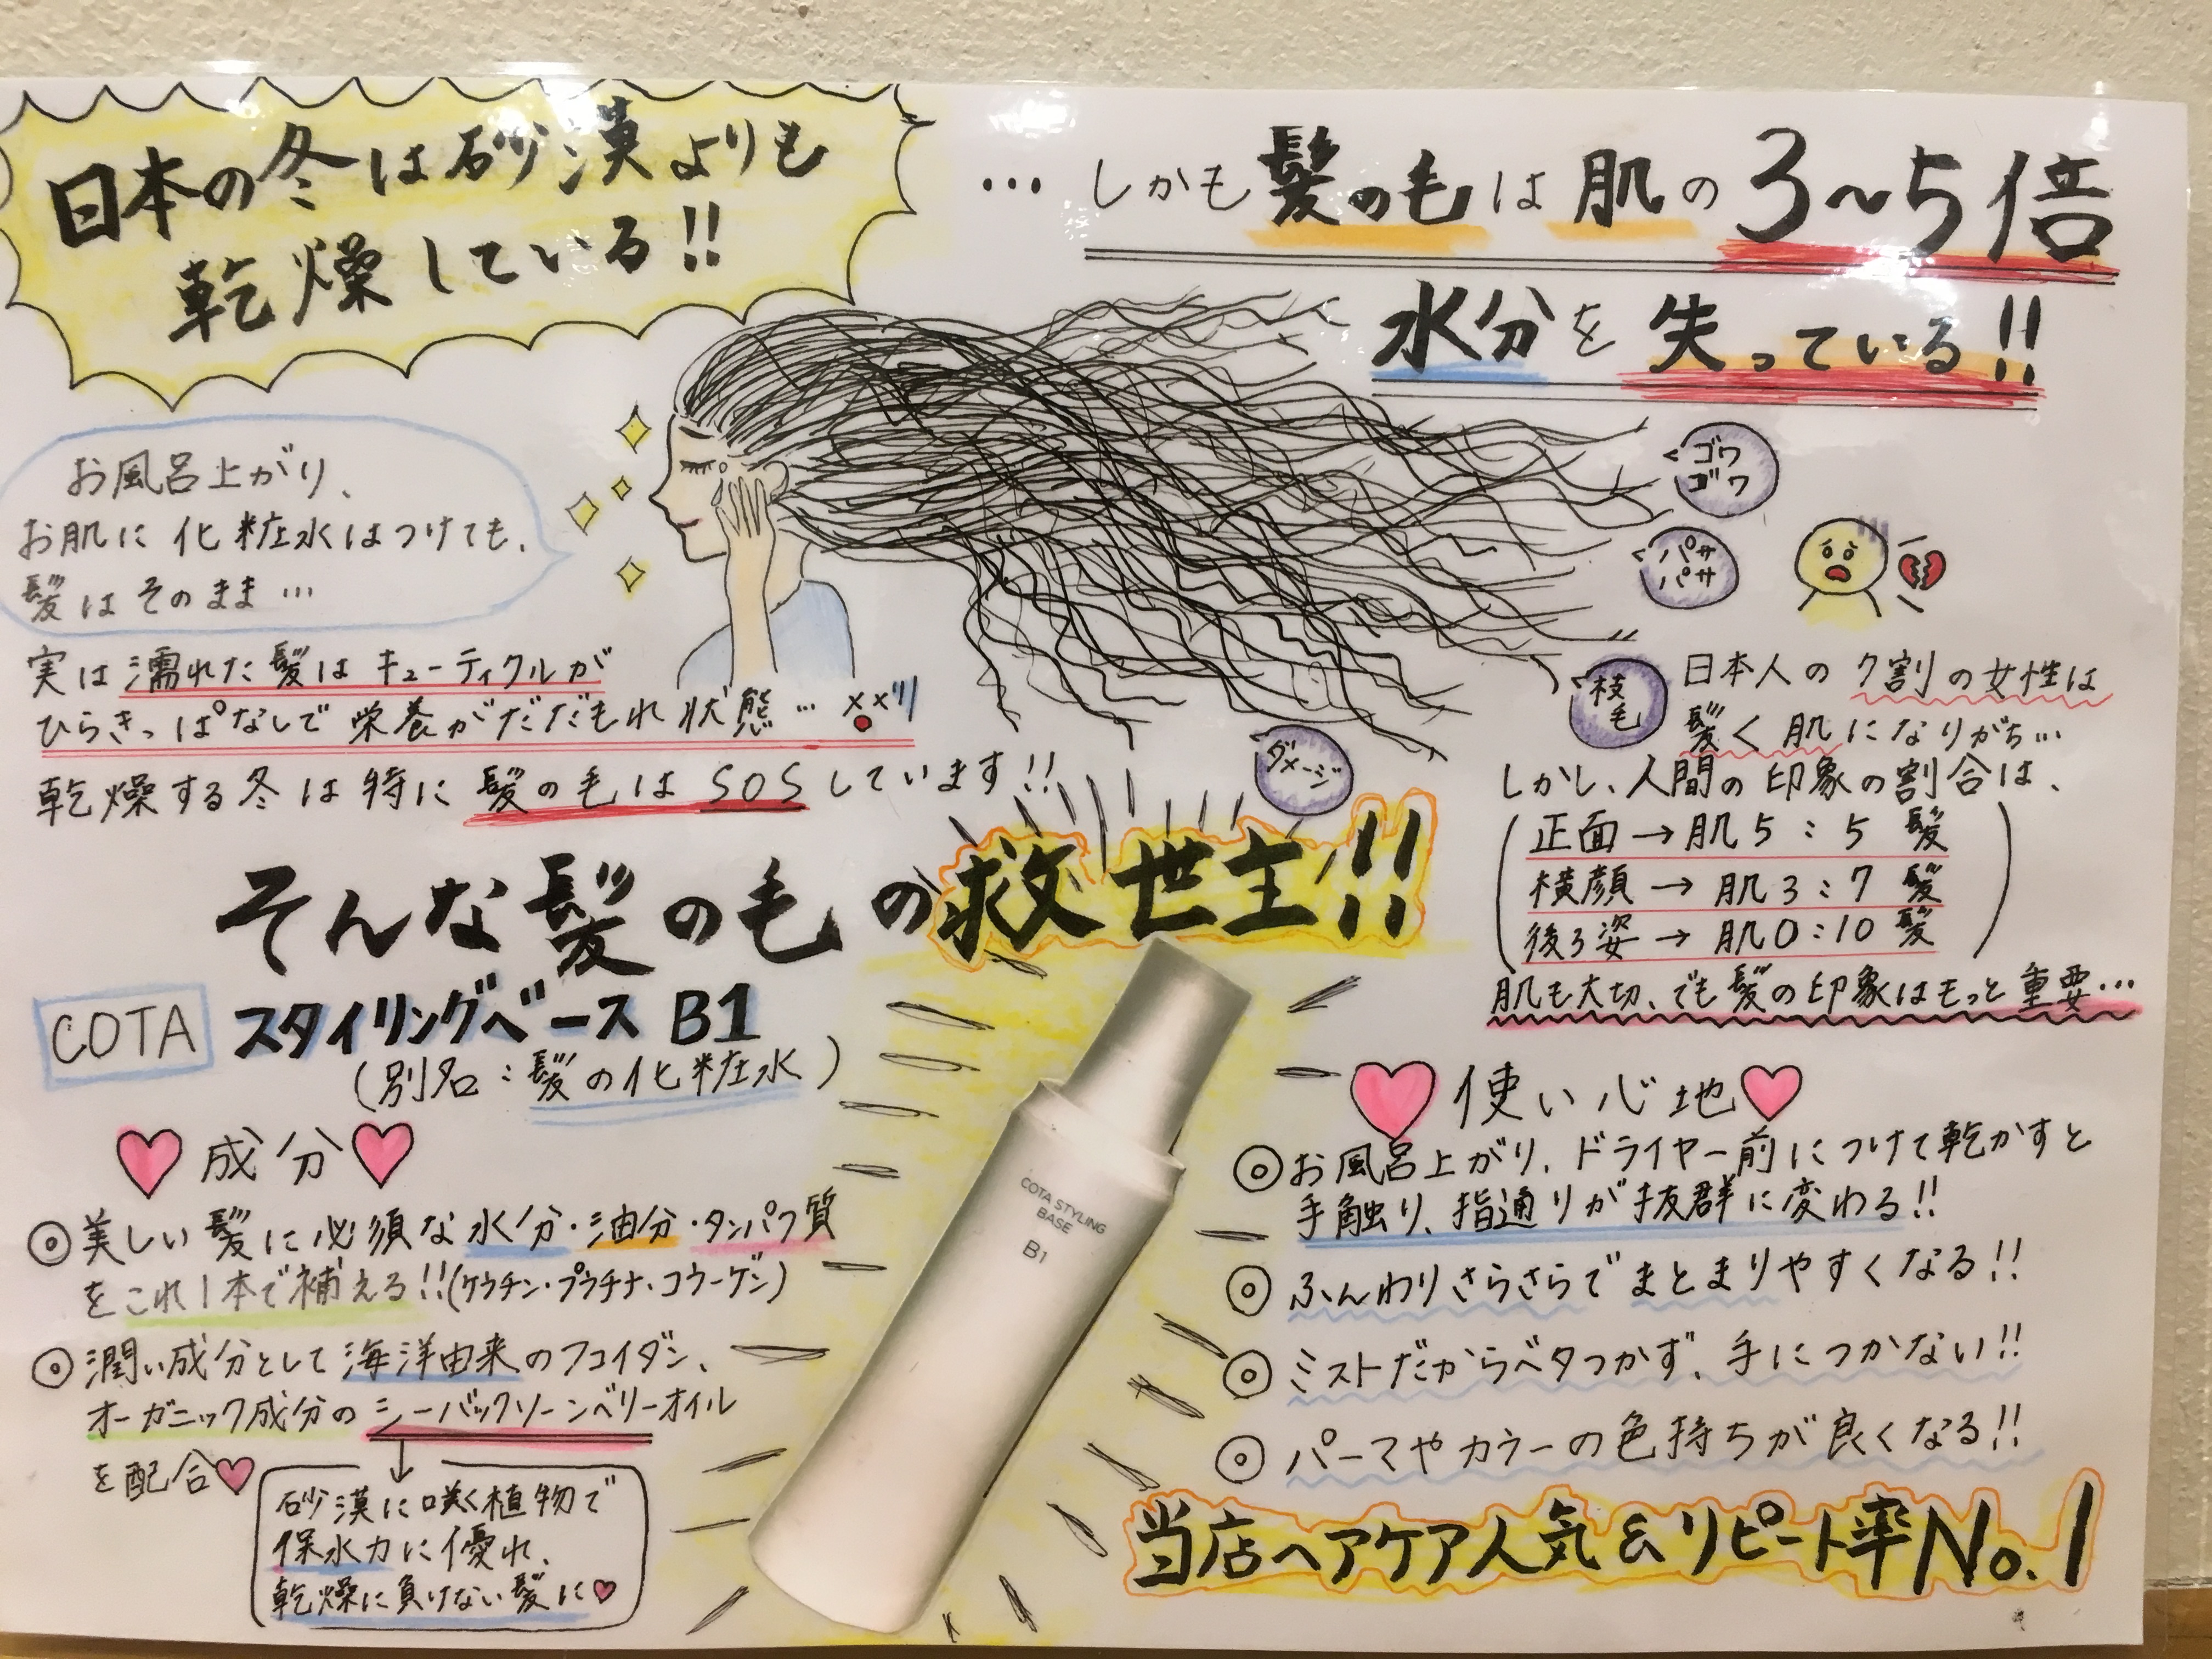 日本の冬は砂漠よりも
乾燥している!!
… しかも髪の毛は肌の3~5倍
水分を失っている!!
お風呂上がり、
お肌に化粧水はつけても、
髪はそのまま…
ゴワ
ゴワ
パサ
パサ
枝
毛
ダメージ
実は濡れた髪はキューティクルが
ひらきっぱなしで栄養がだだもれ状態…
乾燥する冬は特に髪の毛はSOSしています!!
日本人の7割の女性は
髪<肌になりがち…
しかし、人間の印象の割合は、
正面→肌5:5髪
横顔→肌3:7髪
後ろ姿→肌0:10髪
肌も大切、でも髪の印象はもっと重要…
そんな髪の毛の救世主!!
COTA スタイリングベース B1
(別名:髪の化粧水)
COTA STYLING
BASE
B1
♥成分♥
◎美しい髪に必須な水分・油分・タンパク質
をこれ1本で補える!!(ケラチン・プラチナ・コラーゲン)
◎潤い成分として海洋由来のフコイダン、
オーガニック成分のシーバックソーンベリーオイル
を配合♥
砂漠に咲く植物で
保水力に優れ、
乾燥に負けない髪に♥
♥使い心地♥
◎お風呂上がり、ドライヤー前につけて乾かすと
手触り、指通りが抜群に変わる!!
◎ふんわりさらさらでまとまりやすくなる!!
◎ミストだからベタつかず、手につかない!!
◎パーマやカラーの色持ちが良くなる!!
当店ヘアケア人気&リピート率No.1